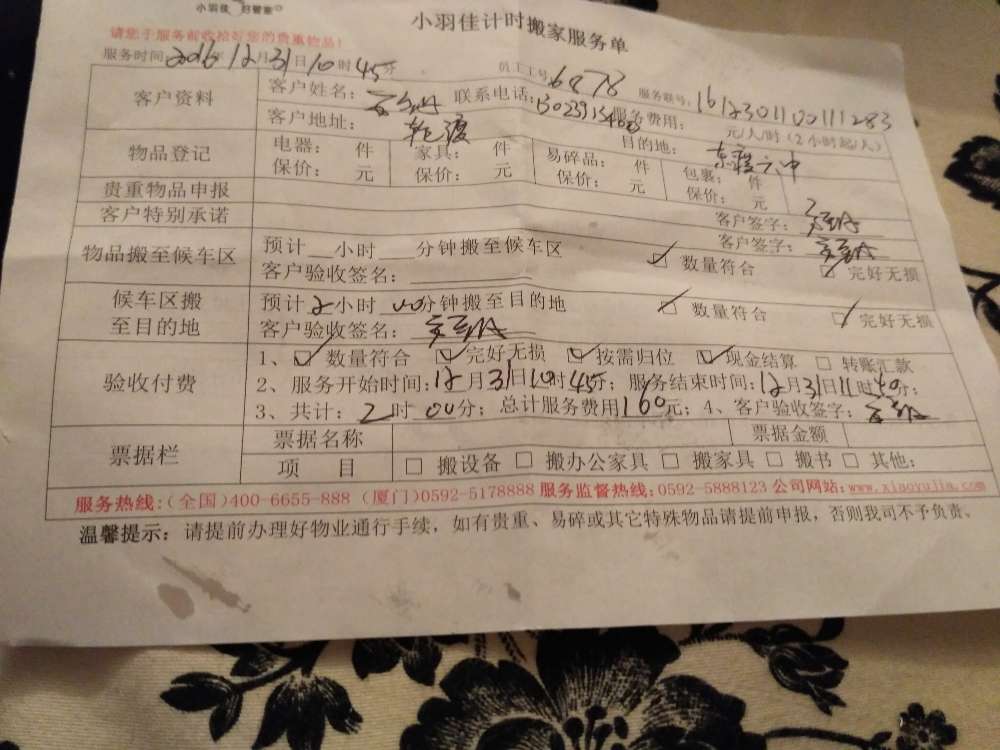 小羽佳 好管家
小羽佳计时搬家服务单
请您于服务前收拾好您的贵重物品!
服务时间:2016年12月31日10时45分 员工工号:6878 服务联号:161230110011283
客户资料 客户姓名: 联系电话: 服务费用: 元/人/时(2小时起/人)
客户地址: 目的地:
物品登记 电器: 件 家具: 件 易碎品: 件 包裹: 件
保价: 元 保价: 元 保价: 元 保价: 元
贵重物品申报 客户签字:
客户特别承诺 客户签字:
物品搬至候车区 预计 小时 分钟搬至候车区 数量符合 完好无损
客户验收签名:
候车区搬至目的地 预计2小时00分钟搬至目的地 数量符合 完好无损
客户验收签名:
验收付费 1、数量符合 完好无损 按需归位 现金结算 转账汇款
2、服务开始时间:12月31日10时45分;服务结束时间:12月31日11时40分;
3、共计:2时00分;总计服务费用160元;4、客户验收签字:
票据栏 票据名称 票据金额
项 目 搬设备 搬办公家具 搬家具 搬书 其他:
服务热线:(全国)400-6655-888 (厦门)0592-5178888 服务监督热线:0592-5888123 公司网站:www.xiaoyujia.com
温馨提示:请提前办理好物业通行手续,如有贵重、易碎或其它特殊物品请提前申报,否则我司不予负责。